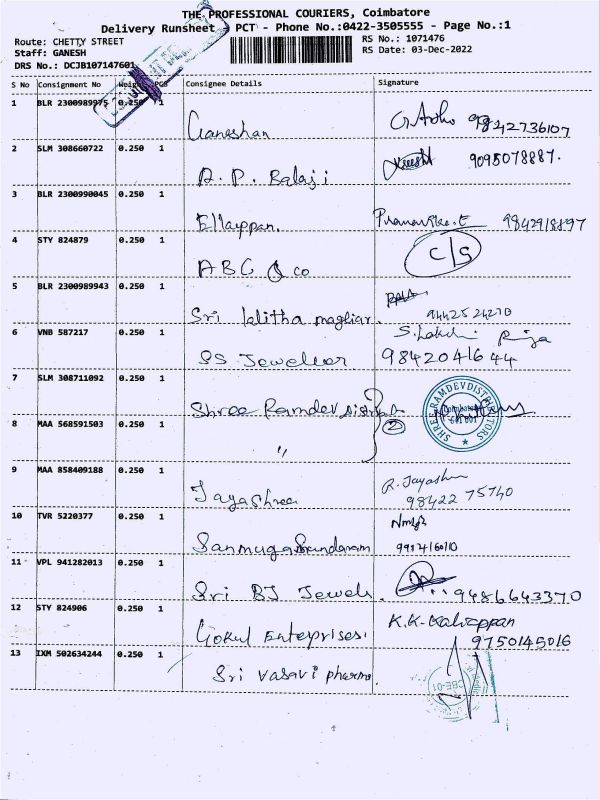 THE PROFESSIONAL COURIERS, Coimbatore
Delivery Runsheet - PCT - Phone No.:0422-3505555 - Page No.:1
Route: CHETTY STREET RS No.: 1071476
Staff: GANESH RS Date: 03-Dec-2022
DRS No.: DCJB107147601
S No Consignment No Weight PCS Consignee Details Signature
1 BLR 2300989975 0.250 1 Ganeshan 9842736107
2 SLM 308660722 0.250 1 A. P. Balaji 9095078887.
3 BLR 2300990045 0.250 1 Ellappan. 9842918897
4 STY 824879 0.250 1 ABC & co C/S
5 BLR 2300989943 0.250 1 Sri 9442524270
6 VNB 587217 0.250 1 SS Jeweller 9842041644
7 SLM 308711092 0.250 1 Shree Ramdev SHREE RAMDEV DISTRIBUTORS
8 MAA 568591503 0.250 1 " 2
9 MAA 858409188 0.250 1 Jayashree R. Jayashree 98422 75740
10 TVR 5220377 0.250 1 Sanmugasundaram
11 VPL 941282013 0.250 1 Sri BJ Jewels. 9486643370
12 STY 824906 0.250 1 Gokul Enterprises. K.K. Kaliappan 9750145016
13 IXM 502634244 0.250 1 Sri Vasavi pharma.